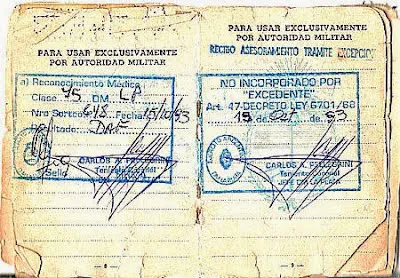 PARA USAR EXCLUSIVAMENTE
POR AUTORIDAD MILITAR
a) Reconocimiento Médico
Clase 75 DM. LP
Nro Sorteo 648 Fecha 15/10/93
ultado: DAF
CARLOS A. PELLEGRINI
Teniente Coronel
Sello
PARA USAR EXCLUSIVAMENTE
POR AUTORIDAD MILITAR
RECIBIO ASESORAMIENTO TRAMITE EXCEPCION
NO INCORPORADO POR
"EXCEDENTE"
Art. 47-DECRETO LEY 6701/68
15 de Oct de 93
CARLOS A. PELLEGRINI
Teniente Coronel
JEFE DM LA PLATA